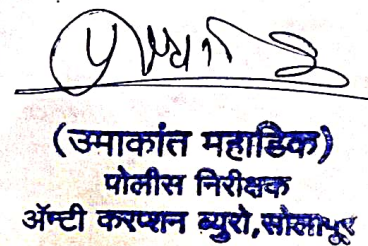 (उमाकांत महाडिक)
पोलीस निरीक्षक
ॲन्टी करप्शन ब्युरो,सोलापूर